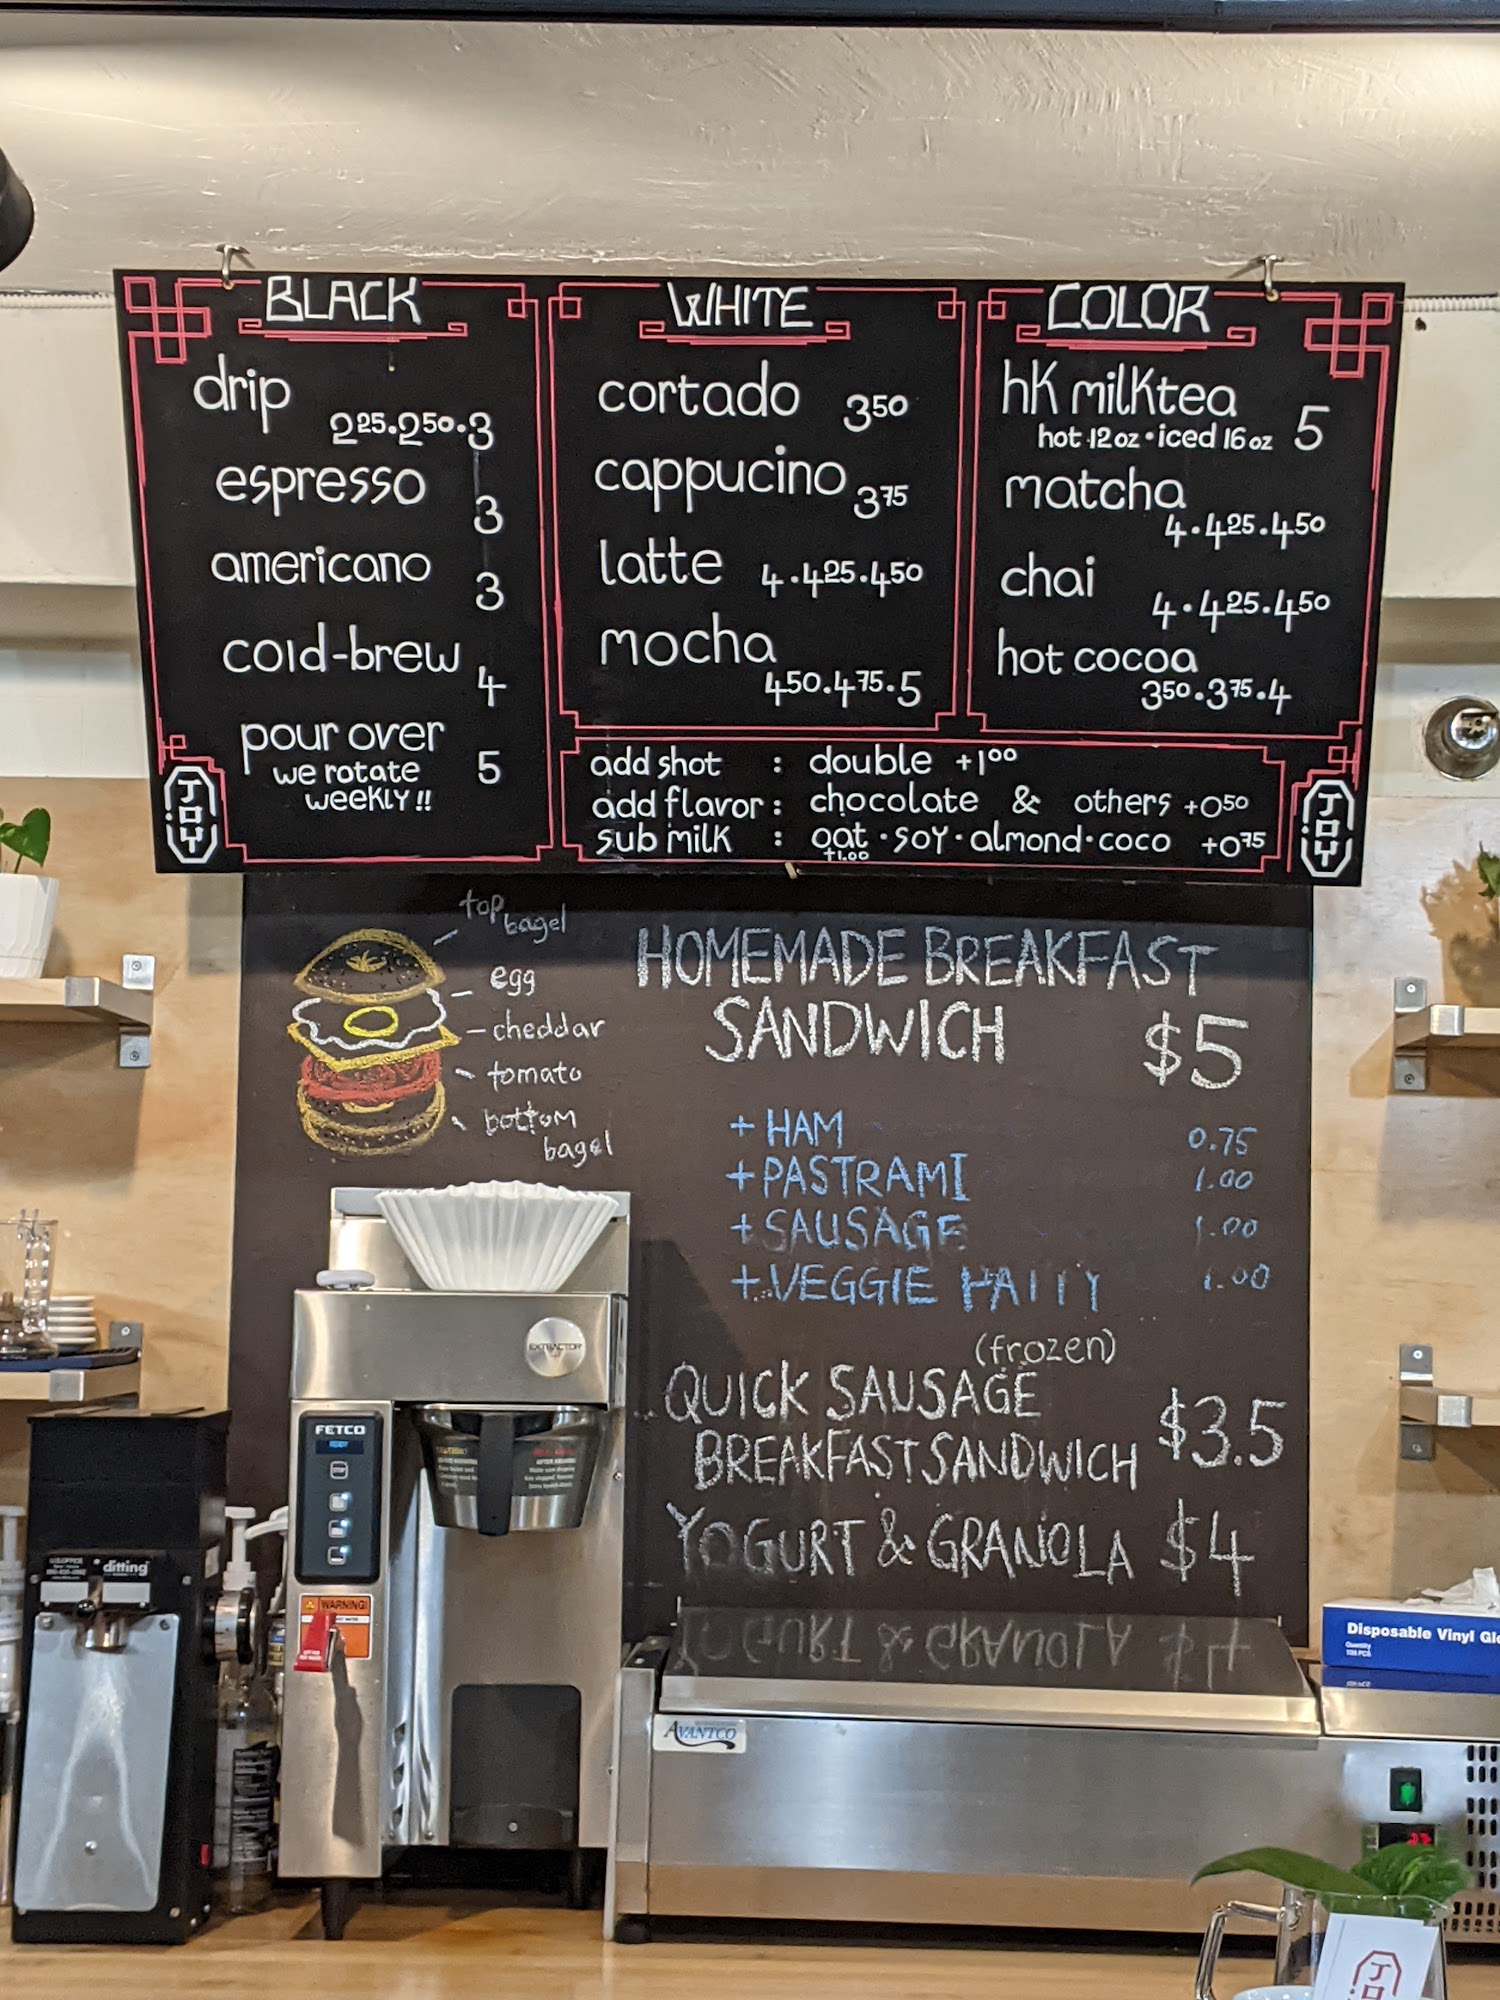 BLACK
drip
2.25 · 2.50 · 3
espresso
3
americano
3
cold-brew
4
pour over
we rotate 5
weekly !!
JOY
WHITE
cortado 3.50
cappucino 3.75
latte 4 · 4.25 · 4.50
mocha
4.50 · 4.75 · 5
COLOR
hk milktea
hot 12oz · iced 16oz 5
matcha
4 · 4.25 · 4.50
chai
4 · 4.25 · 4.50
hot cocoa
3.50 · 3.75 · 4
add shot : double +1.00
add flavor : chocolate & others +0.50
sub milk : oat · soy · almond · coco +0.75
+1.00
JOY
top
bagel
egg
cheddar
tomato
bottom
bagel
HOMEMADE BREAKFAST
SANDWICH $5
+ HAM 0.75
+ PASTRAMI 1.00
+ SAUSAGE 1.00
+ VEGGIE PATTY 1.00
(frozen)
QUICK SAUSAGE
BREAKFAST SANDWICH $3.5
YOGURT & GRANOLA $4
EXTRACTOR
FETCO
READY
STOP
WARNING!
ditting
AVANTCO
Disposable Vinyl Glo
Quantity
100 PCS
JOY